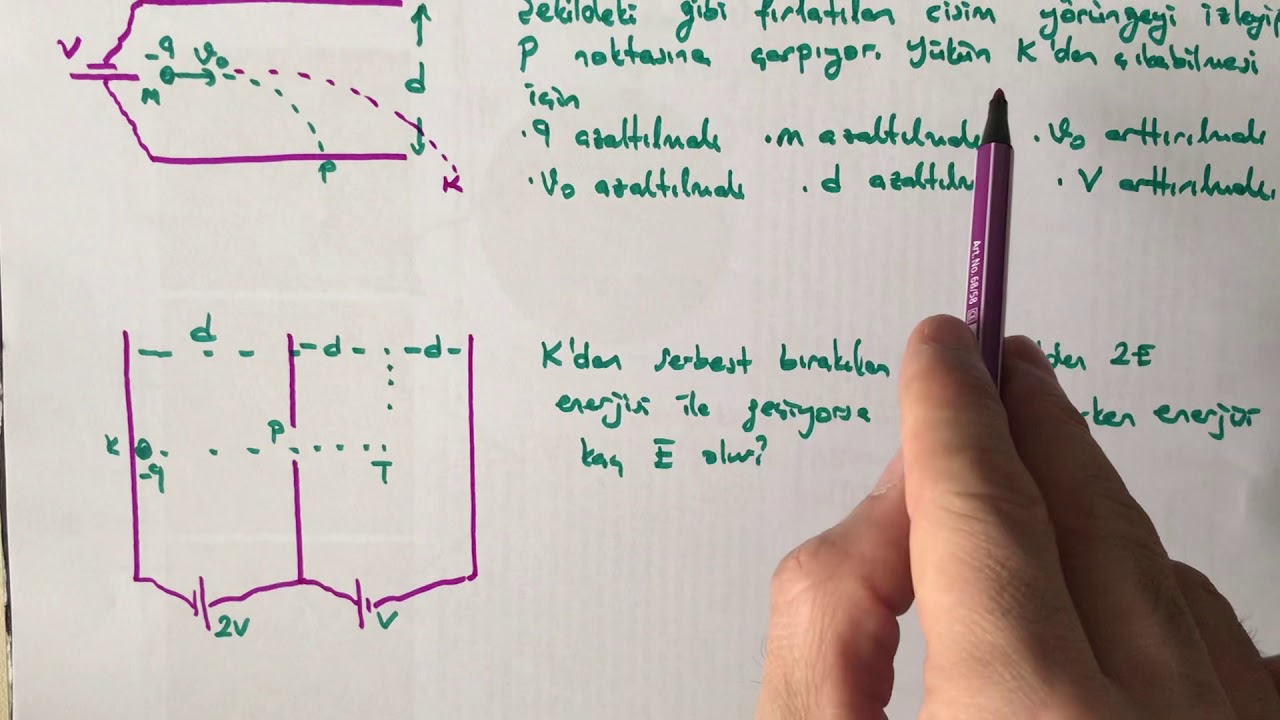 Şekildeki gibi fırlatılan cisim yörüngeyi izleyip
P noktasına çarpıyor. Yükün K'dan çıkabilmesi
için
. q azaltılmalı . m azaltılmalı . v₀ arttırılmalı
. v₀ azaltılmalı . d azaltılm . V arttırılmalı
V
-q
v₀
M
d
P
K
K'dan serbest bırakılan 'den 2E
enerjisi ile geçiyorsa rken enerjisi
kaç E olur?
d
d
d
K
-q
P
T
2V
V
Art.No.68/58